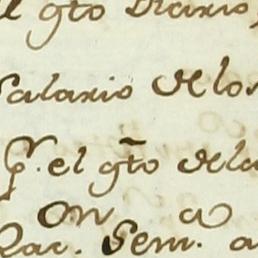 el gto Diario
Salario de los
pr. el gto dela
on a
Rac. Sem. a